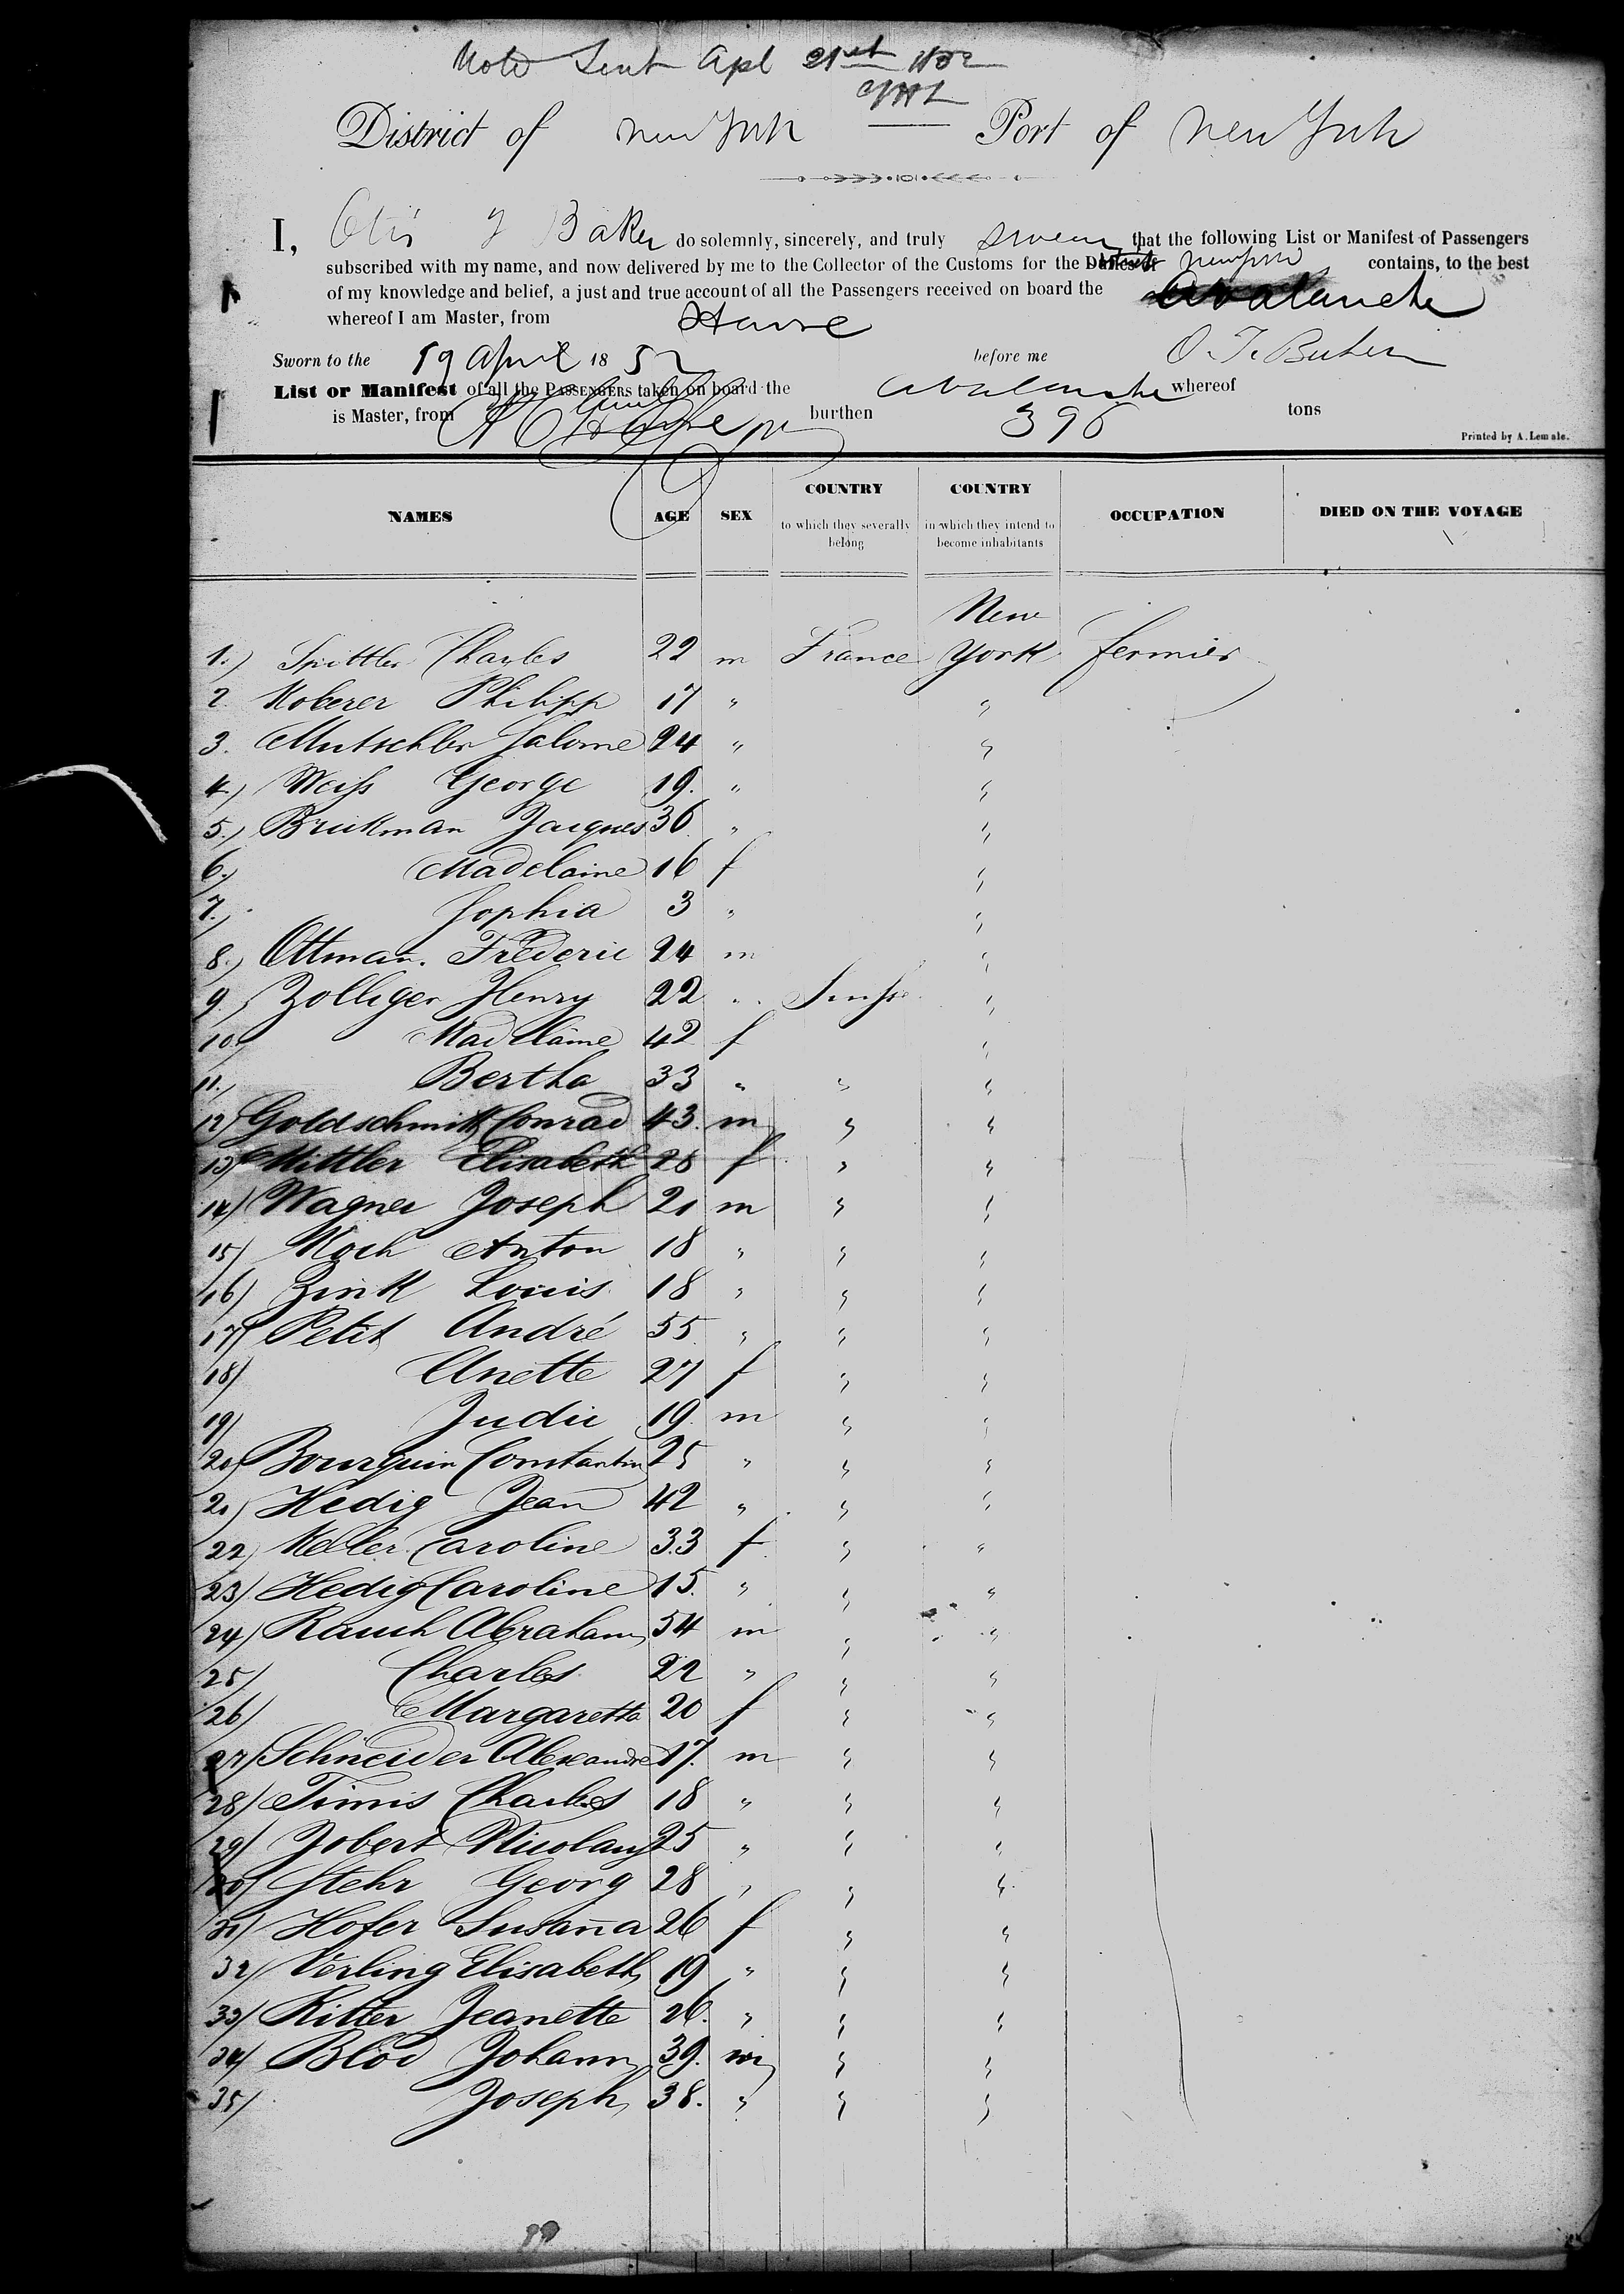 Note Sent Apl 21st 1852
District of New York Port of New York
I, Otis T Baker do solemnly, sincerely, and truly swear that the following List or Manifest of Passengers
subscribed with my name, and now delivered by me to the Collector of the Customs for the District New York contains, to the best
of my knowledge and belief, a just and true account of all the Passengers received on board the Avalanche
whereof I am Master, from Havre
Sworn to the 19 April 1852 before me O. T. Baker
List or Manifest of all the PASSENGERS taken on board the Avalanche whereof
is Master, from burthen 396 tons
Printed by A. Lemale.
NAMES AGE SEX COUNTRY to which they severally belong COUNTRY in which they intend to become inhabitants OCCUPATION DIED ON THE VOYAGE
New
1.) Spittler Charles 22 m France York fermier
2. Koberer Philipp 17 " "
3. Mutschler Salome 24 " "
4.) Weiss George 19. " "
5.) Bruckman Jacques 36 " "
6.) Madelaine 16 f "
7.) Sophia 3 " "
8.) Ottman. Frederic 24 m "
9.) Zolliger Henry 22 " Suisse "
10.) Madelaine 42 f "
11.) Bertha 33 " " "
12) Goldschmitt Conrad 43. m " "
13) Mittler Elisabeth 28 f " "
14) Wagner Joseph 21 m " "
15) Koch Anton 18 " " "
16) Zink Louis 18 " " "
17) Petit André 55 " " "
18) Anette 27 f " "
19) Judic 19. m " "
20) Bourquin Constantin 25 " " "
21) Hedig Jean 42 " " "
22) Keller Caroline 33 f " "
23) Hedig Caroline 15. " " "
24) Rauch Abraham 54 m " "
25) Charles 22 " " "
26) Margaretta 20 f " "
27) Schneider Alexandre 17. m " "
28) Timis Charles 18 " " "
29) Jobert Nicolaus 25 " " "
30) Stehr Georg 28 " " "
31) Hofer Susanna 26 f " "
32) Verling Elisabeth 19 " " "
33) Ritter Jeanette 26. " " "
34) Blöd Johann 39. m " "
35) Joseph 38. " " "